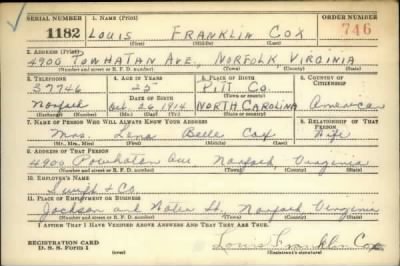 SERIAL NUMBER 1. NAME (Print) ORDER NUMBER
1182 LOUIS FRANKLIN COX 746
(First) (Middle) (Last)
2. ADDRESS (Print)
4900 POWHATAN AVE., NORFOLK, VIRGINIA
(Number and street or R. F. D. number) (Town) (County) (State)
3. TELEPHONE 4. AGE IN YEARS 5. PLACE OF BIRTH 6. COUNTRY OF CITIZENSHIP
37746 25 PITT CO.
DATE OF BIRTH (Town or county)
Norfolk Oct. 26, 1914 NORTH CAROLINA American
(Exchange) (Number) (Mo.) (Day) (Yr.) (State or country)
7. NAME OF PERSON WHO WILL ALWAYS KNOW YOUR ADDRESS 8. RELATIONSHIP OF THAT PERSON
Mrs. Lena Belle Cox Wife
(Mr., Mrs., Miss) (First) (Middle) (Last)
9. ADDRESS OF THAT PERSON
4900 Powhatan Ave Norfolk Virginia
(Number and street or R. F. D. number) (Town) (County) (State)
10. EMPLOYER'S NAME
Swift & Co.
11. PLACE OF EMPLOYMENT OR BUSINESS
Jackson and Water St. Norfolk Virginia
(Number and street or R. F. D. number) (Town) (County) (State)
I AFFIRM THAT I HAVE VERIFIED ABOVE ANSWERS AND THAT THEY ARE TRUE.
REGISTRATION CARD
D. S. S. Form 1 (over) Louis Franklin Cox
(Registrant's signature)